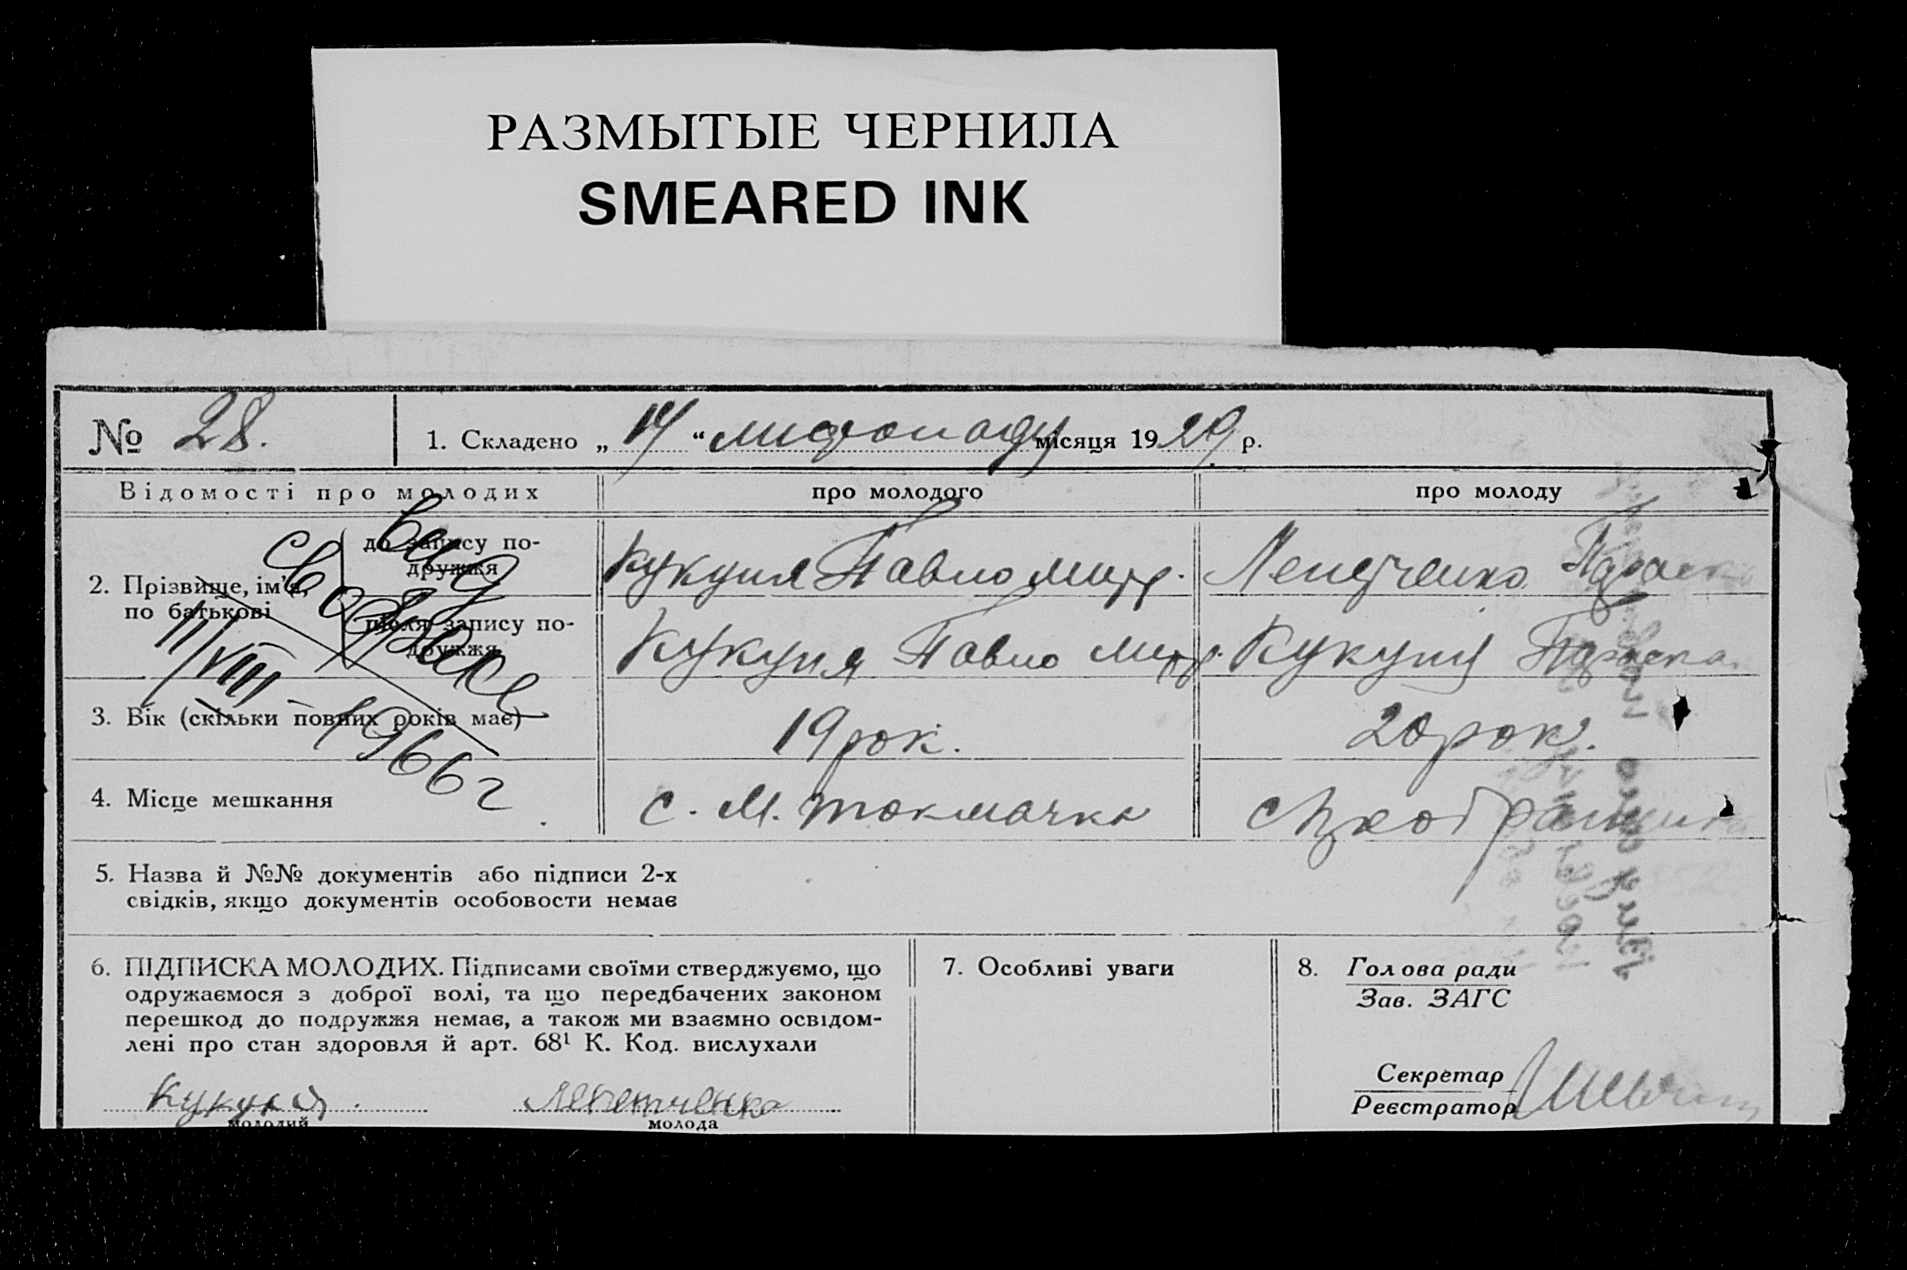 РАЗМЫТЫЕ ЧЕРНИЛА
SMEARED INK
№ 28.
1. Складено „ 14 “ листопаду місяця 1929 р.
Відомості про молодих
про молодого
про молоду
2. Прізвище, ім'я, по батькові
до запису по-
дружжя
Кукуня Павло Митр.
Лепетченко Параска
після запису по-
дружжя
Кукуня Павло Митр.
Кукуня Параска
Выд
11/VIII – 1966 г
3. Вік (скільки повних років має)
19 рок.
20 рок.
4. Місце мешкання
с. М. Токмачка
5. Назва й №№ документів або підписи 2-х
свідків, якщо документів особовости немає
6. ПІДПИСКА МОЛОДИХ. Підписами своїми стверджуємо, що
одружаємося з доброї волі, та що передбачених законом
перешкод до подружжя немає, а також ми взаємно освідом-
лені про стан здоровля й арт. 68¹ К. Код. вислухали
Кукуня
молодий
Лепетченко
молода
7. Особливі уваги
8. Голова ради
Зав. ЗАГС
Секретар
Реєстратор